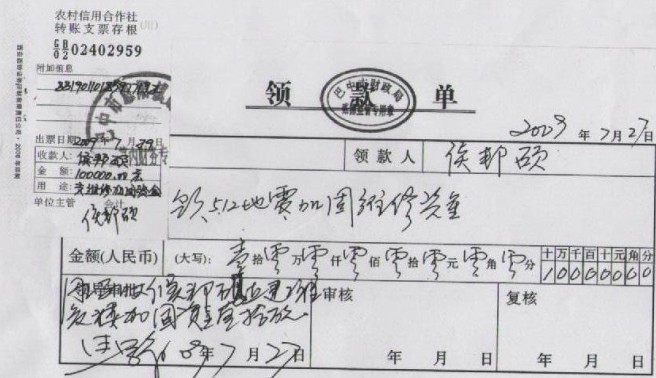 农村信用合作社
转账支票存根
GB
02 02402959
附加信息
出票日期 2009年7月29日
收款人：侯邦硕
金额：100000.00元
用途：支维修加固资金
单位主管 会计
侯邦硕
领款单
巴中市财政局
2009年7月27日
领款人 侯邦硕
领5.12地震加固维修资金
金额(人民币) (大写)：壹拾零万零仟零佰零拾零元零角零分 十万千百十元角分
10000000
审核
复核
09年7月27日
年月日
年月日